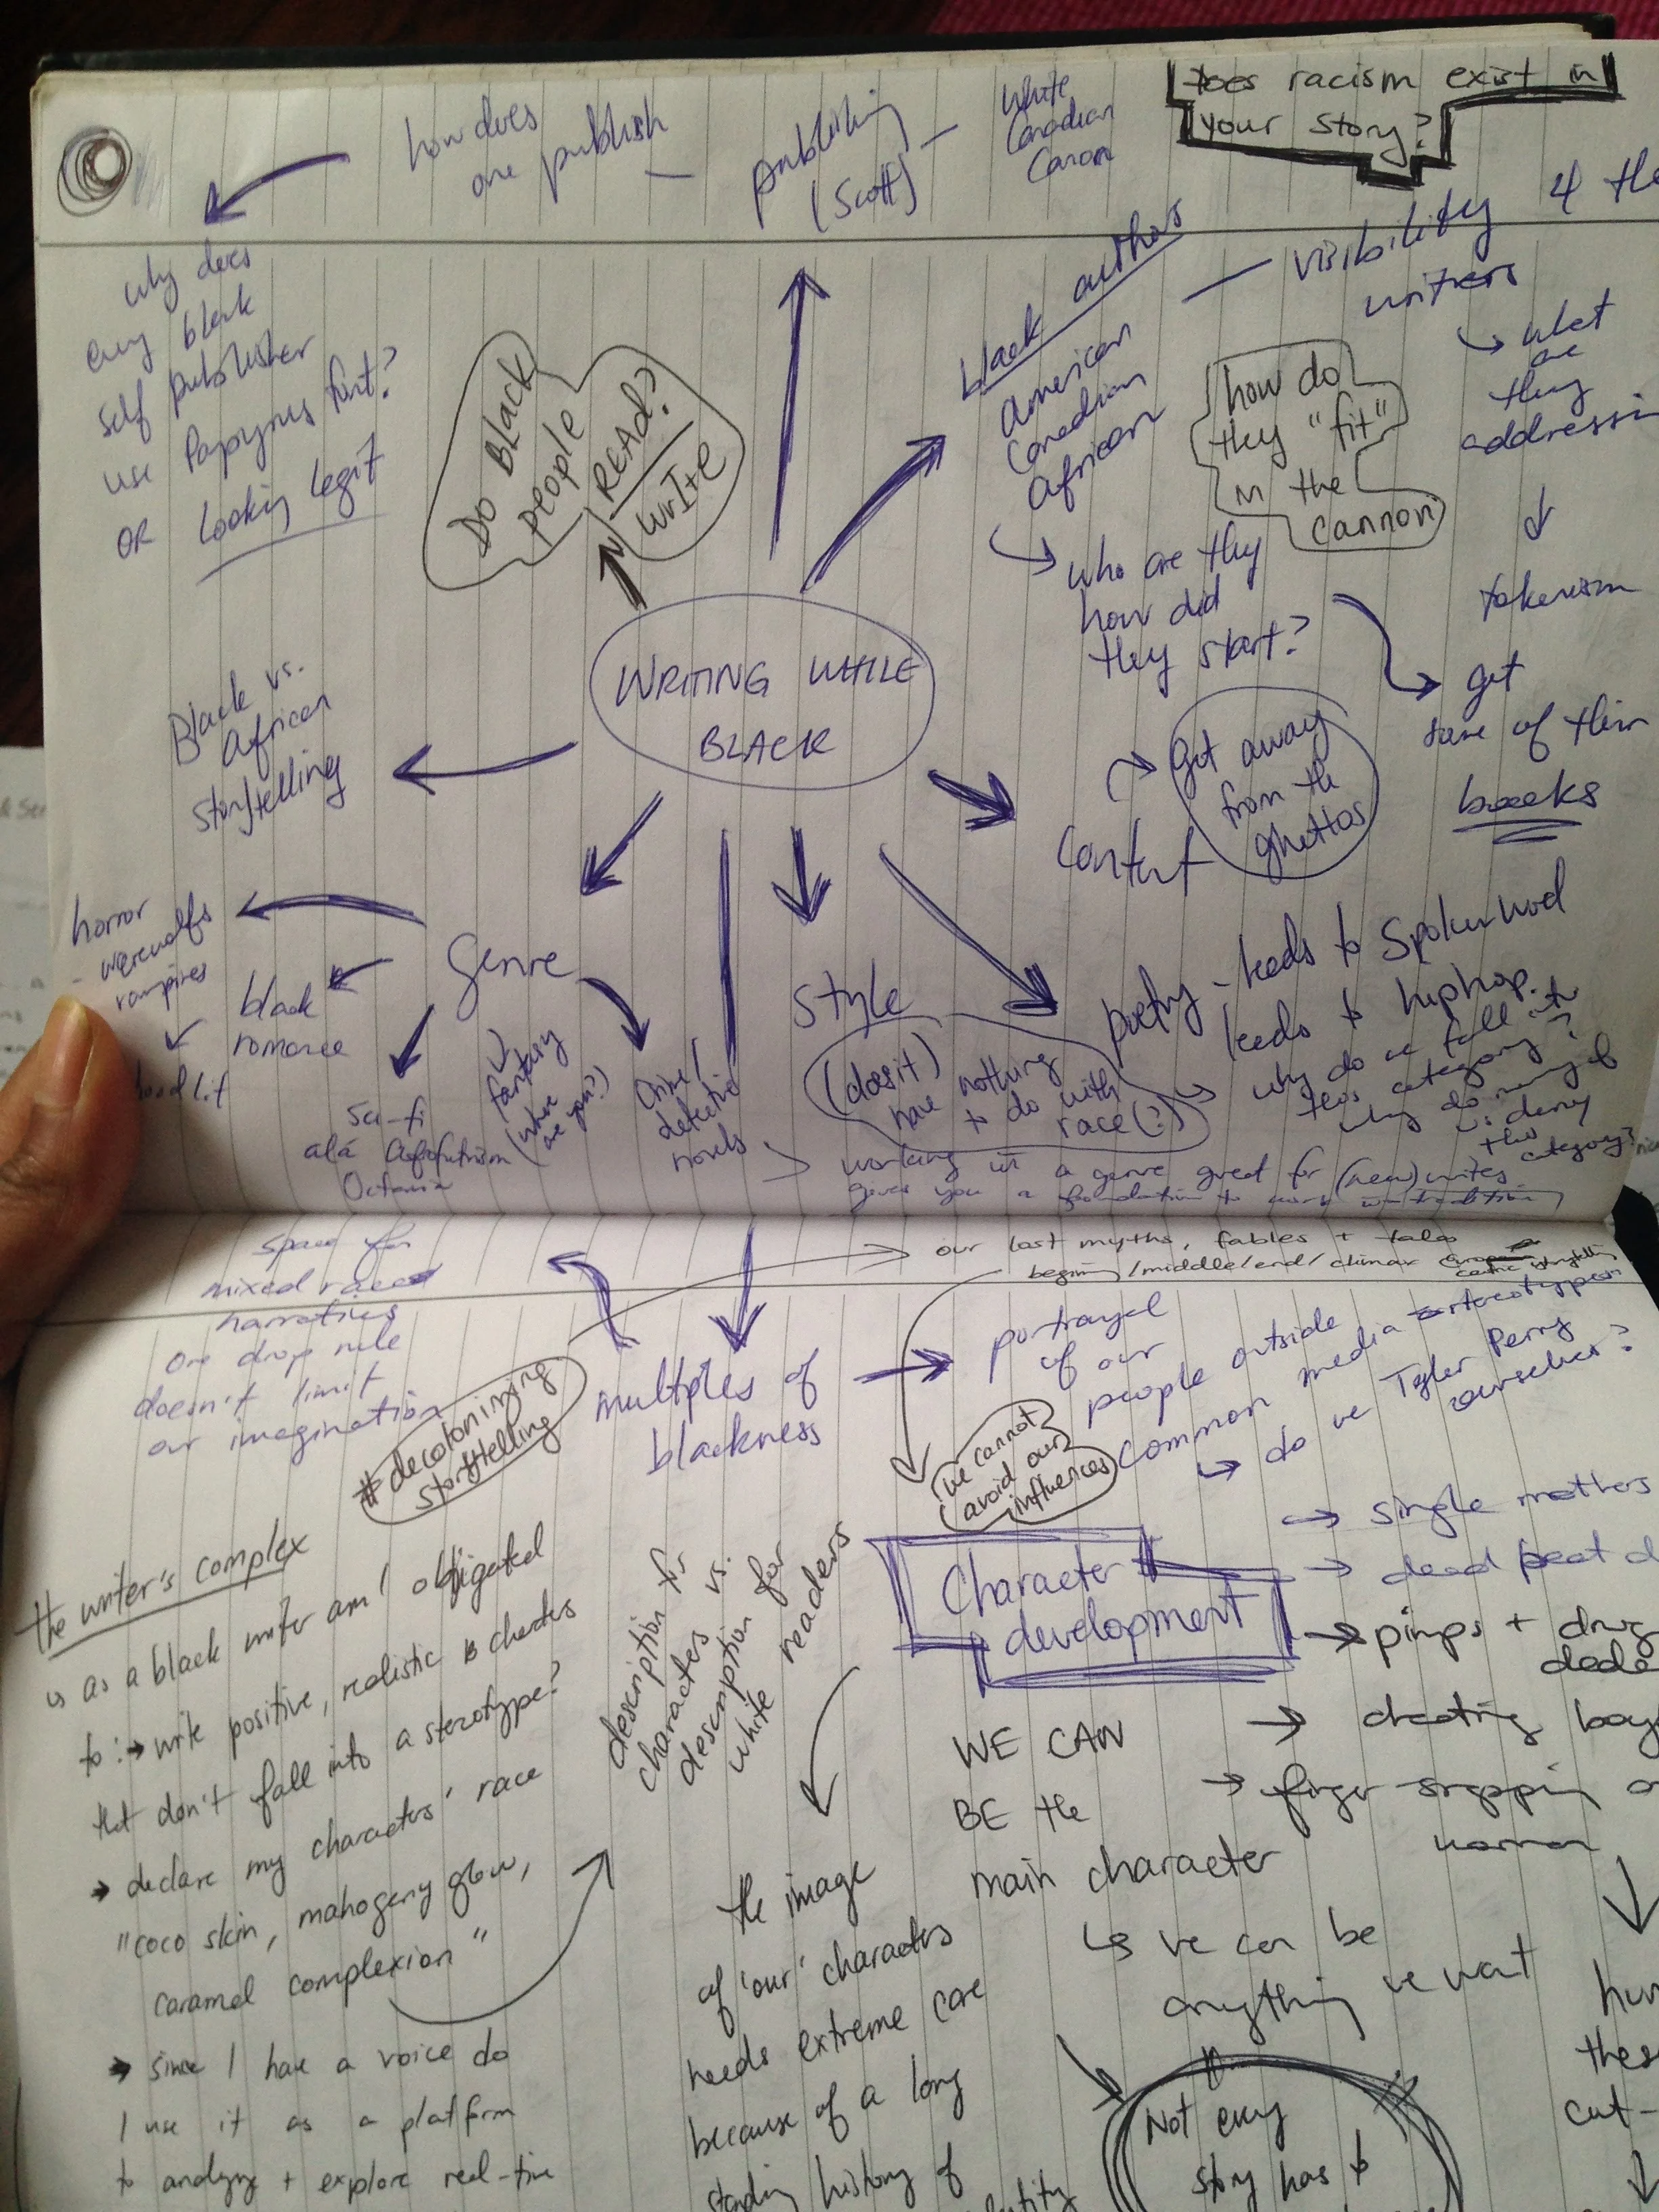 how does
one publish
publishing
(Scott)
White
Canadian
Canon
Does racism exist in
your story?
why does
every black
self publisher
use Papyrus font?
OR Looking legit
Do Black
people
READ?
WRITE
black authors
American
Canadian
African
visibility 4 the
writers
what
are
they
addressin
tokenism
how do
they "fit"
in the
cannon
who are they
how did
they start?
get
some of their
books
WRITING WHILE
BLACK
Black vs.
African
storytelling
Content
Get away
from the
ghettos
Genre
horror
- werewolfs
vampires
hood lit
black
romance
Sci-fi
alá Afrofuturism
Octavia
fantasy
(where
are you?)
Crime/
detective
novels
Style
(does it)
have nothing
to do with
race(?)
poetry - leads to Spoken word
leads to hiphop.
why do we fall into
this category?
why do many of
us deny
this
category?
working in a genre great for (new) writes
gives you a foundation to work w tradition
our lost myths, fables + tales
begin/middle/end/climax
centric storytelling
space for
mixed race
narratives
one drop rule
doesn't limit
our imagination
#decolonizing
storytelling
multiples of
blackness
portrayal
of our
people outside
common media stereotypes
do we Tyler Perry
ourselves?
we cannot
avoid our
influences
single mothers
dead beat d
pimps + drug
deale
cheating boy
finger snapping
woman
the writer's complex
as a black writer am I obligated
to: write positive, realistic characters
that don't fall into a sterotype?
declare my characters' race
"coco skin, mahogeny glow,
caramel complexion"
since I have a voice do
I use it as a platform
to analyze + explore real-time
description for
characters vs.
description for
white readers
Character
development
WE CAN
BE the
main character
we can be
anything we want
the image
of 'our' characters
needs extreme care
because of a long
standing history of
Not every
story has to
these
cut-